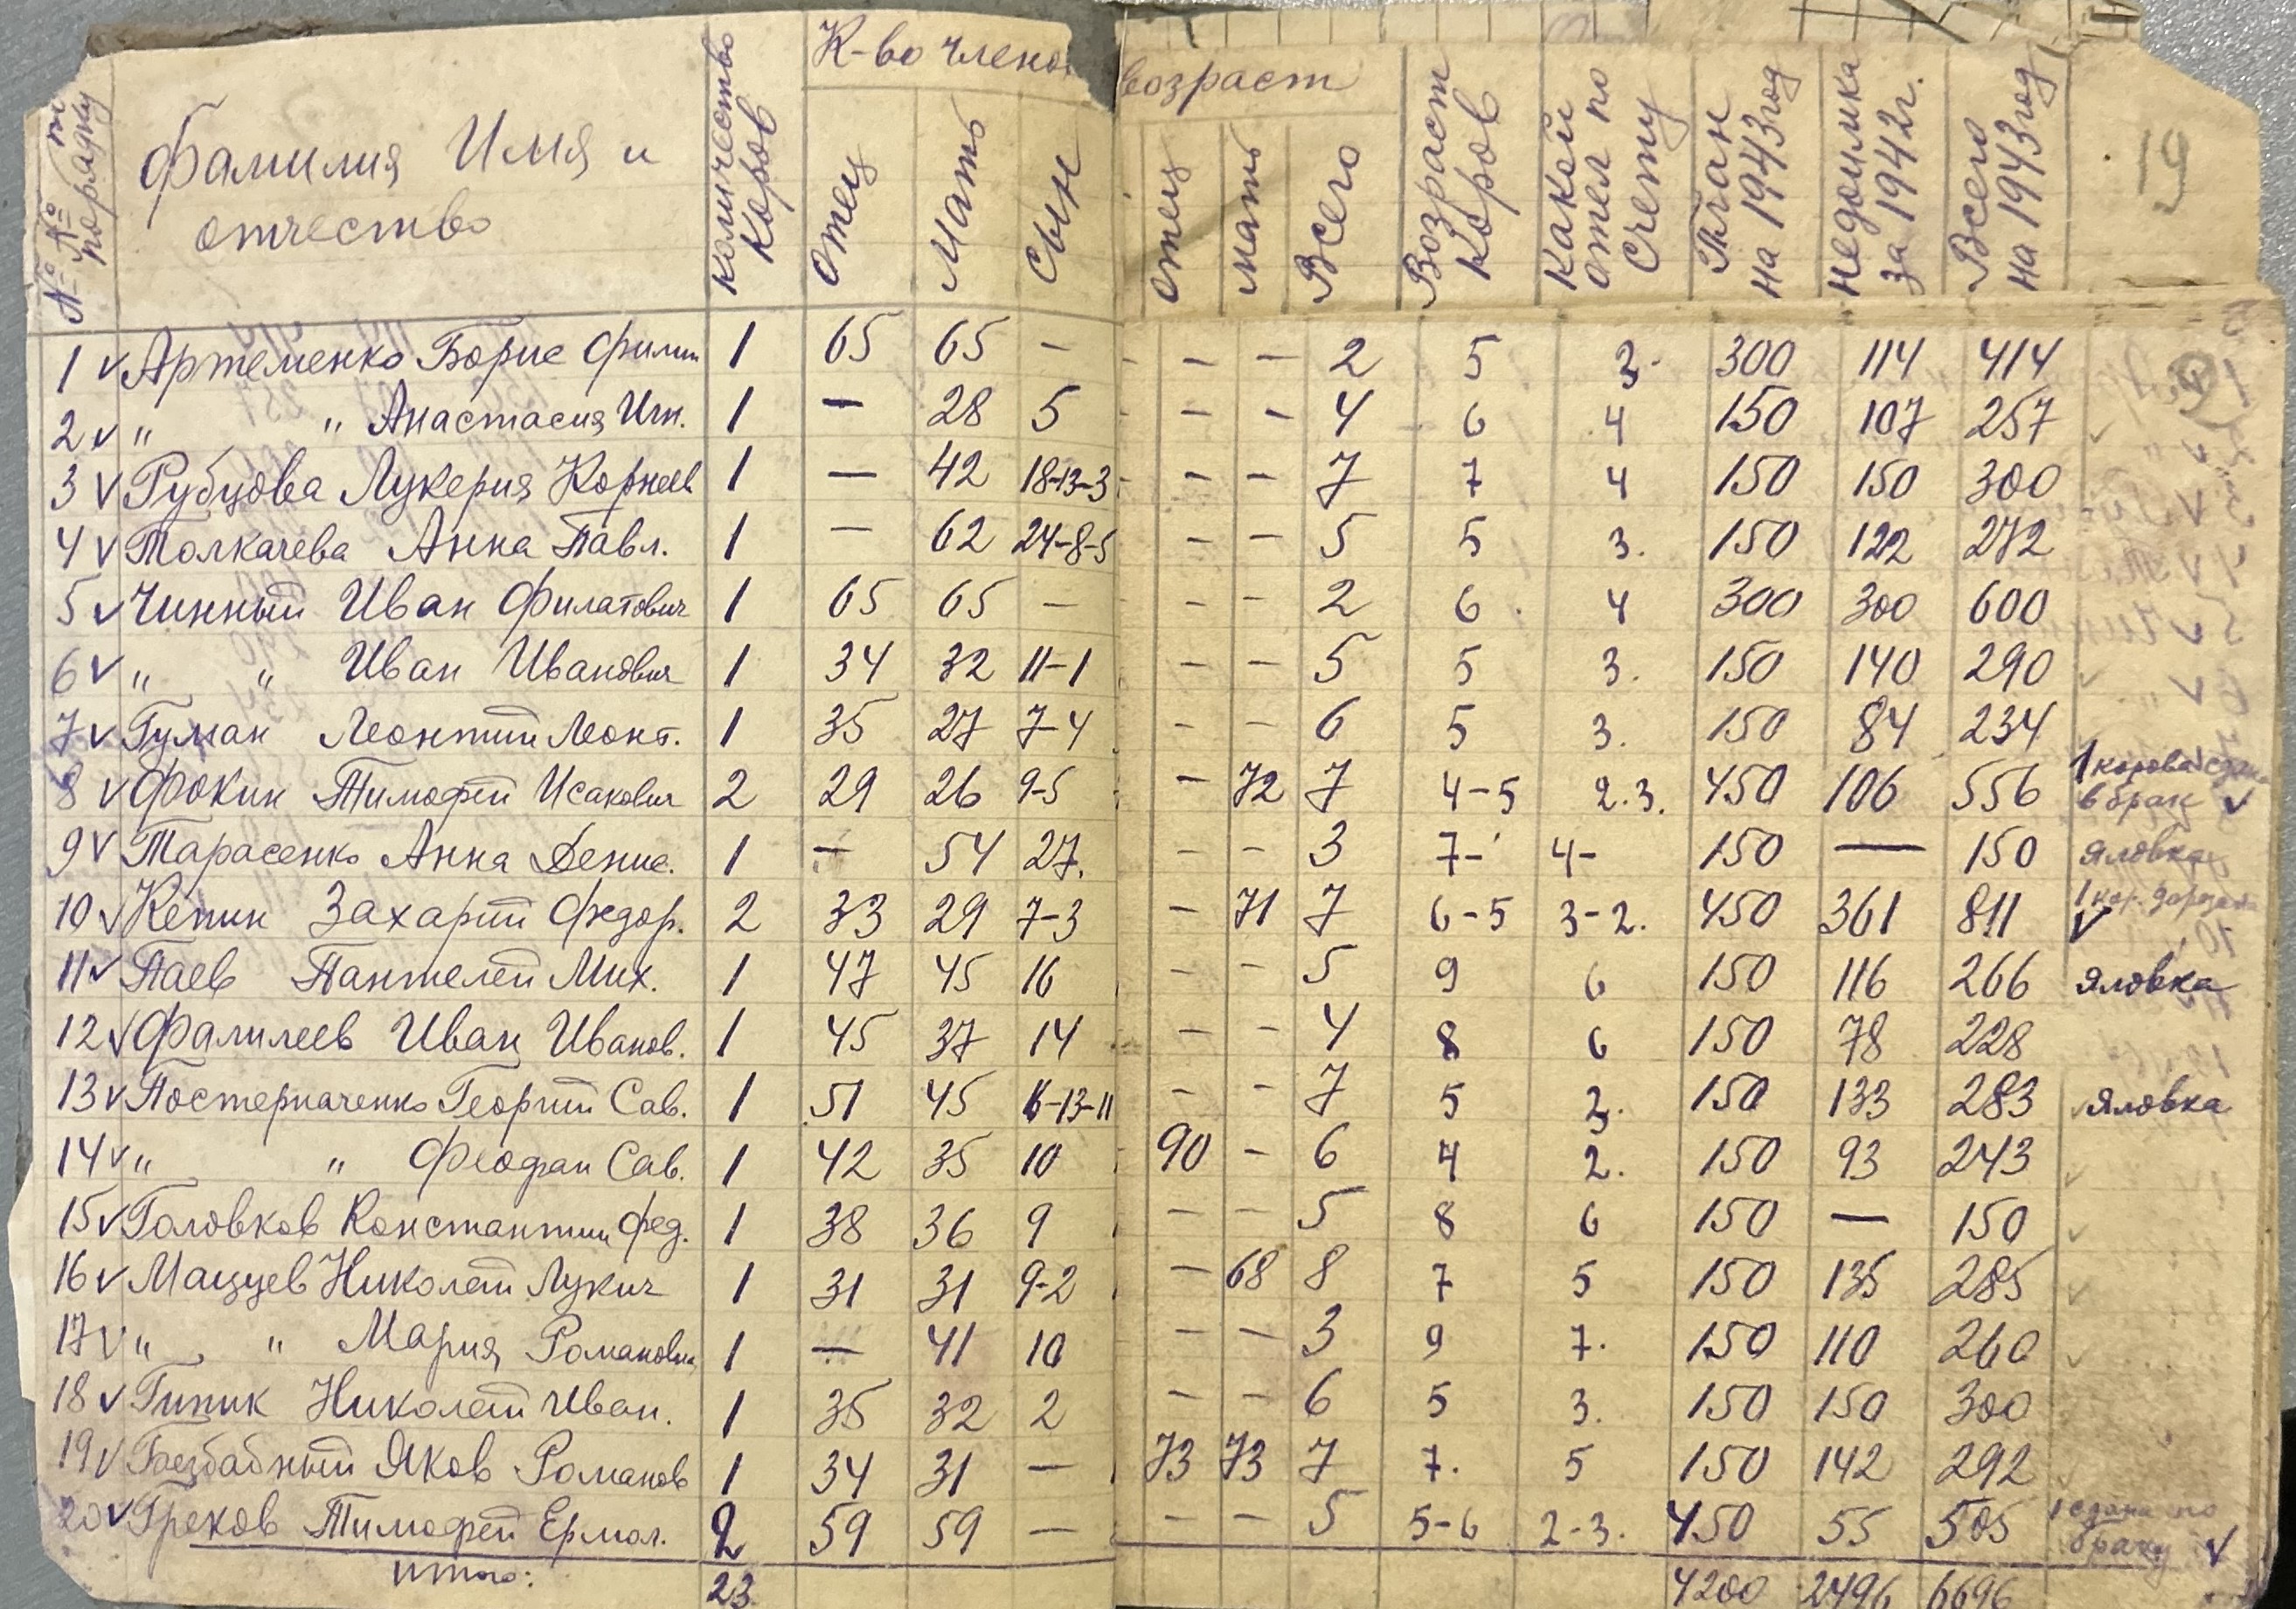 № №№ п/п порядку
Фамилия Имя и отчество
количество коров
К-во члено
возраст
отец
Мать
сын
отец
мать
Всего
Возраст коров
какой отел по счету
План на 1943 год
недоимка за 1942 г.
Всего на 1943 год
19
1 v Артеменко Борис Филип 1 65 65 — — — 2 5 3. 300 114 414
2 v " " Анастасия Игн. 1 — 28 5 — — 4 6 4 150 107 257 v
3 v Рубцова Лукерия Корнеев 1 — 42 18-13-3 — — 7 7 4 150 150 300
4 v Толкачева Анна Павл. 1 — 62 24-8-5 — — 5 5 3. 150 122 272
5 v Чинный Иван Филатович 1 65 65 — — — 2 6 4 300 300 600
6 v " " Иван Иванович 1 34 32 11-1 — — 5 5 3. 150 140 290 v
7 v Гуман Леонтий Леонт. 1 35 27 7-4 — — 6 5 3. 150 84 234
8 v Фокин Тимофей Исакович 2 29 26 9-5 — 72 7 4-5 2.3. 450 106 556 1 корова сдана в брак v
9 v Тарасенко Анна Денис. 1 — 54 27. — — 3 7- 4- 150 — 150 яловка
10 v Кепин Захарий Федор. 2 33 29 7-3 — 71 7 6-5 3-2. 450 361 811 1 кор. v
11 v Паев Пантелей Мих. 1 47 45 16 — — 5 9 6 150 116 266 яловка
12 v Фалилеев Иван Иванов. 1 45 37 14 — — 4 8 6 150 78 228
13 v Постерначенко Георгий Сав. 1 51 45 16-13-11 — — 7 5 2. 150 133 283 v яловка
14 v " " Феофан Сав. 1 42 35 10 90 — 6 4 2. 150 93 243 v
15 v Головков Константин Фед. 1 38 36 9 — — 5 8 6 150 — 150 v
16 v Мацуев Николай Лукич 1 31 31 9-2 — 68 8 7 5 150 135 285 v
17 v " " Мария Романовна 1 — 41 10 — — 3 9 7. 150 110 260 v
18 v Гипик Николай Иван. 1 35 32 2 — — 6 5 3. 150 150 300
19 v Безбабный Яков Романов 1 34 31 — 73 73 7 7. 5 150 142 292 v
20 v Греков Тимофей Ермол. 2 59 59 — — — 5 5-6 2-3. 450 55 505 1 сдана по браку v
итого: 23 4200 2496 6696